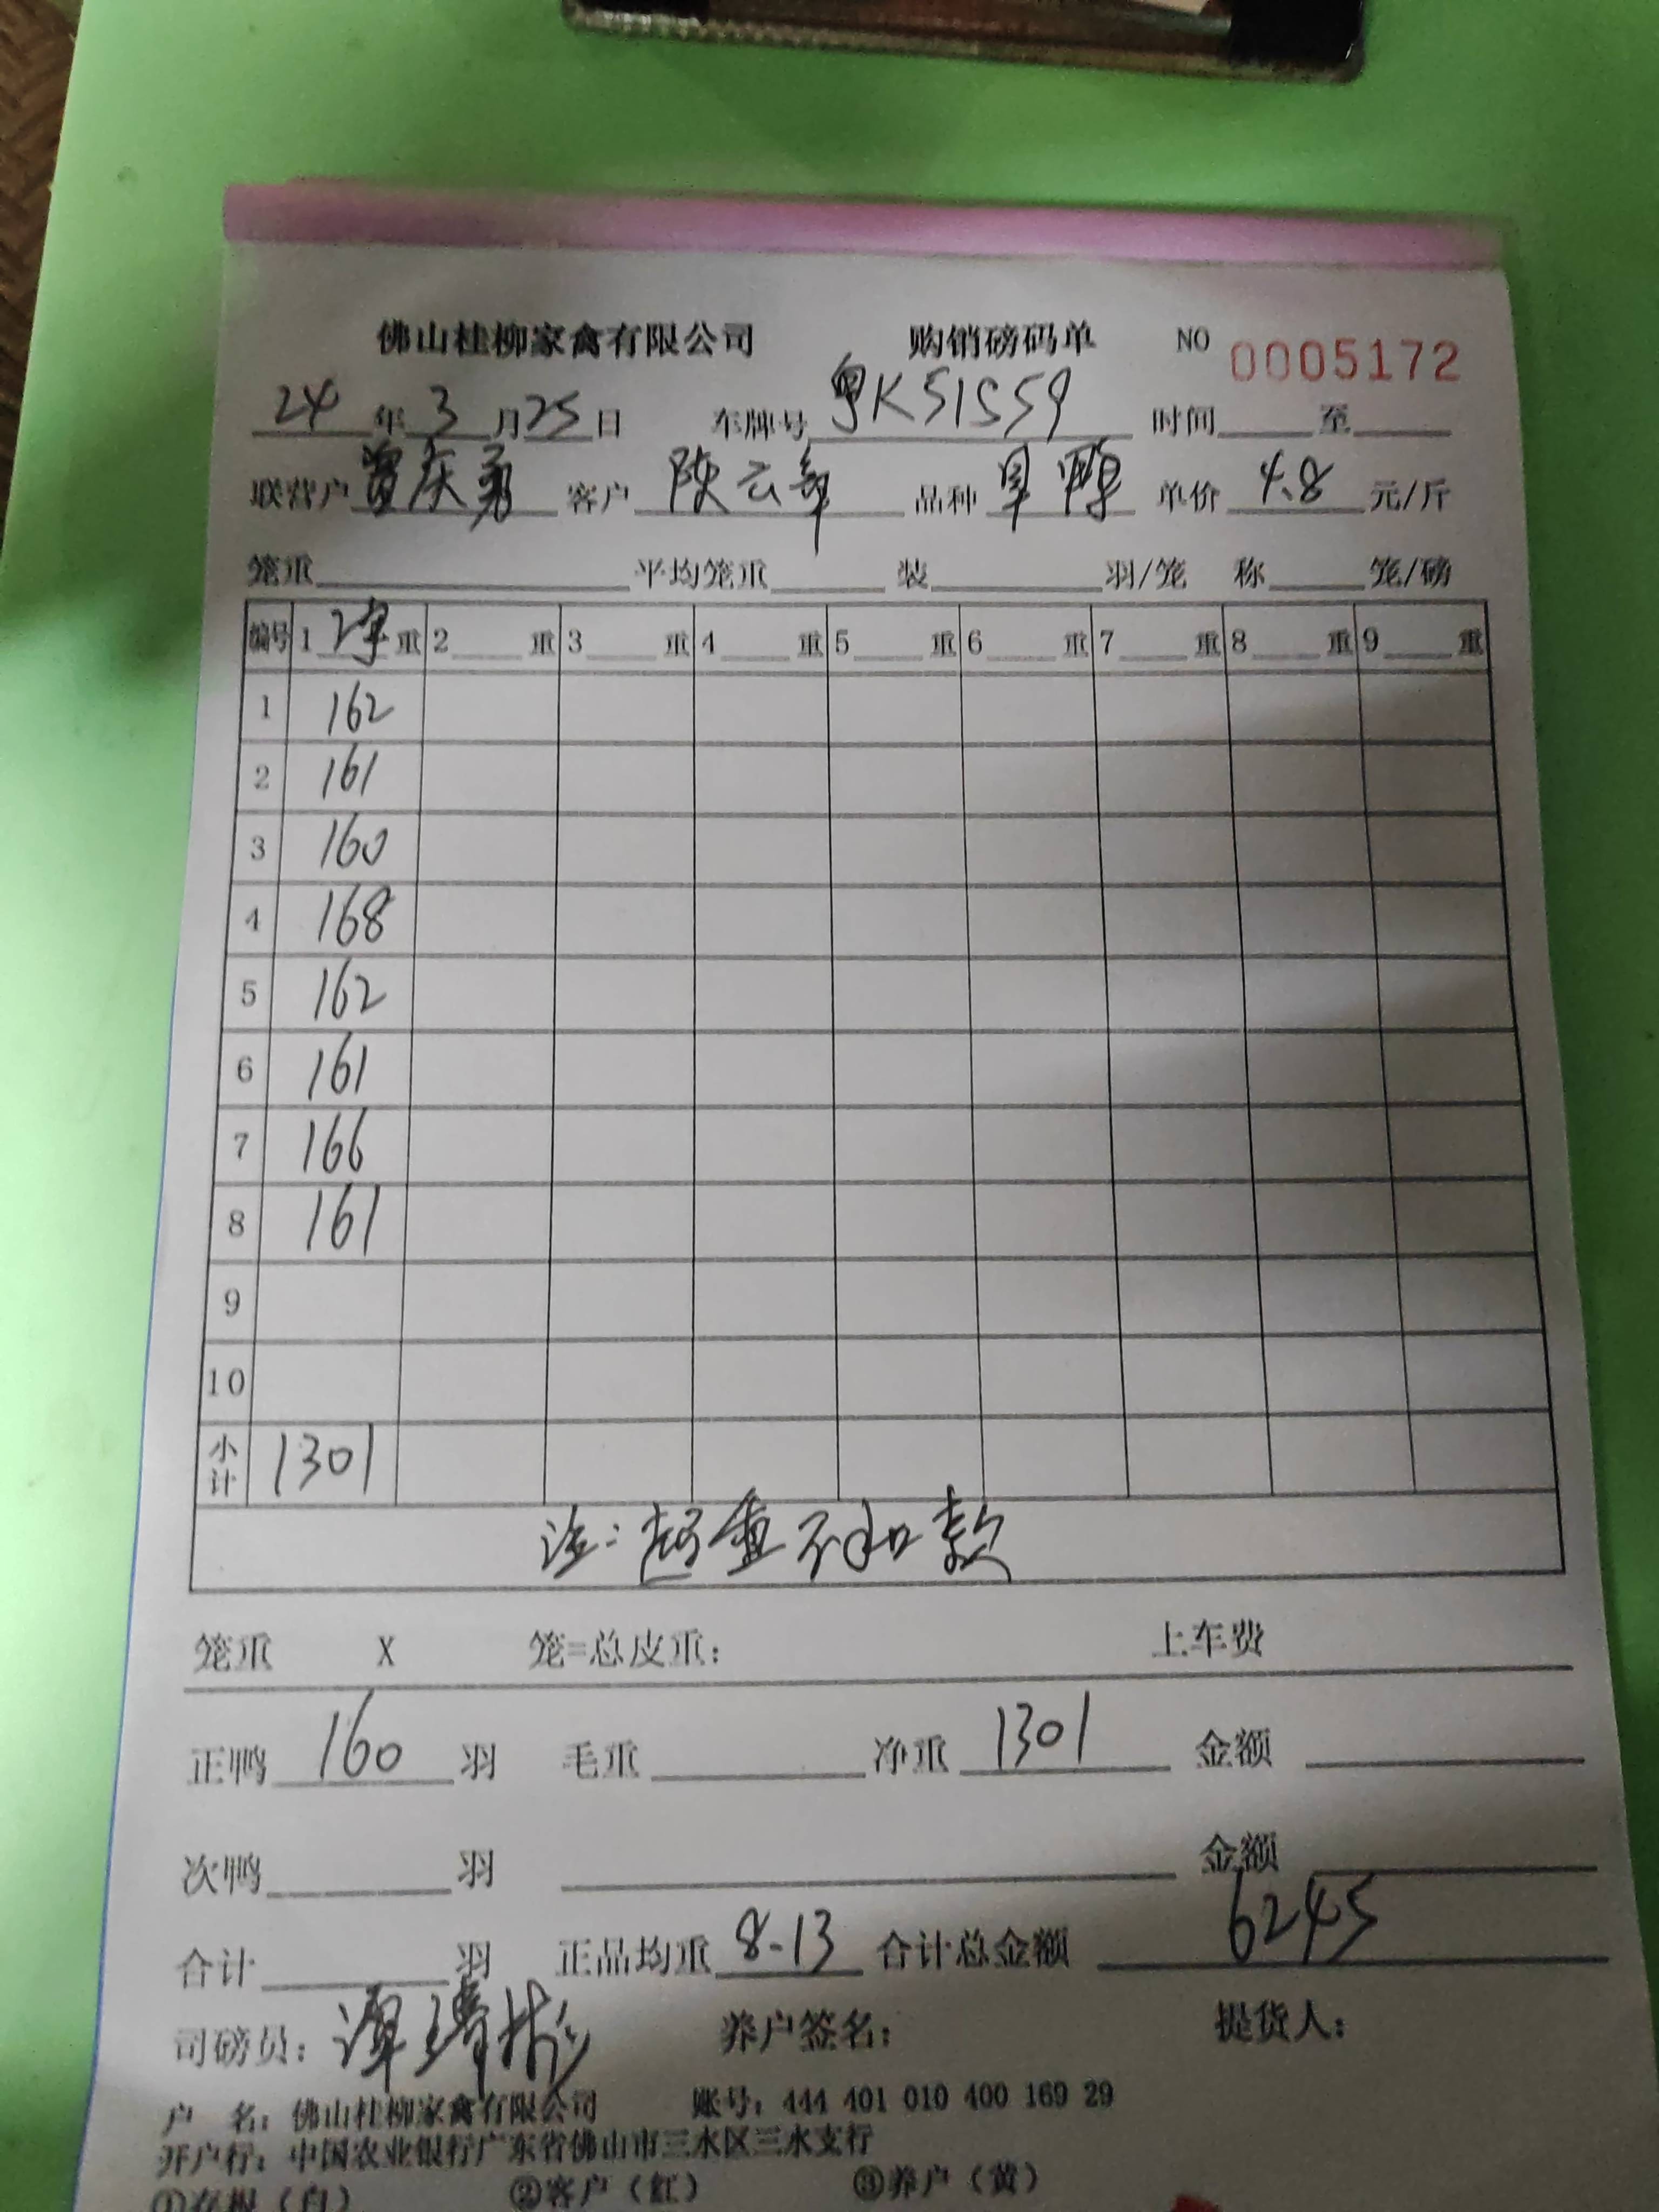 佛山桂柳家禽有限公司 购销磅码单 NO 0005172
24年3月25日 车牌号 粤K51559 时间 至
联营户 庆勇 客户 陈云 品种 旱鸭 单价 4.8 元/斤
笼重 平均笼重 装 羽/笼 称 笼/磅
编号 1 净 重 2 重 3 重 4 重 5 重 6 重 7 重 8 重 9 重
1 162
2 161
3 160
4 168
5 162
6 161
7 166
8 161
9
10
小计 1301
注:超重不扣款
笼重 X 笼=总皮重: 上车费
正鸭 160 羽 毛重 净重 1301 金额
次鸭 羽 金额
合计 羽 正品均重 8.13 合计总金额 6245
司磅员: 谭 彬 养户签名: 提货人:
户 名: 佛山桂柳家禽有限公司 账号: 444 401 010 400 169 29
开户行: 中国农业银行广东省佛山市三水区三水支行
①存根(白) ②客户(红) ③养户(黄)